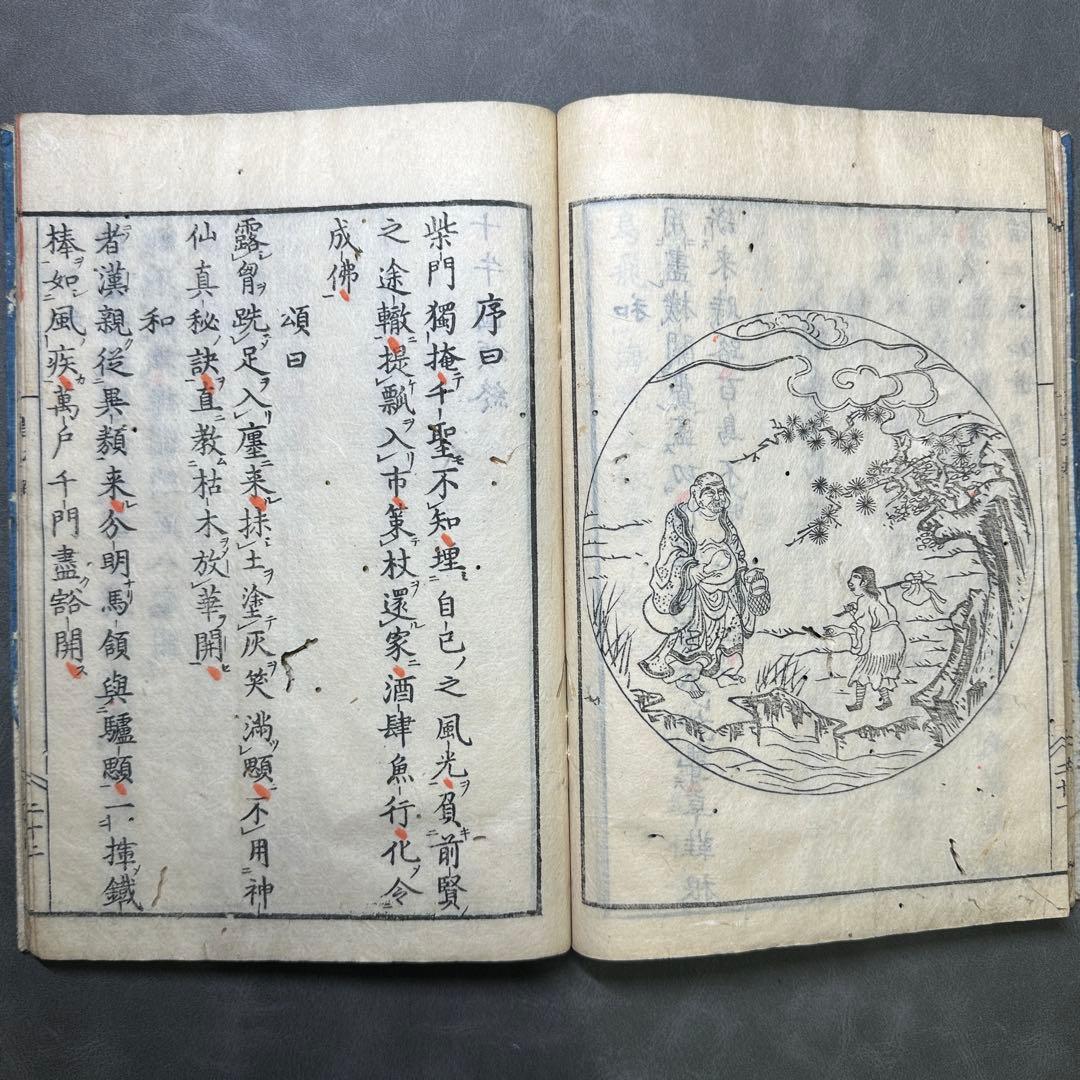 二十一
序曰
柴門獨掩千聖不知埋自己之風光負前賢
之途轍提瓢入市策杖還家酒肆魚行化令
成佛
頌曰
露胷跣足入廛来抹土塗灰笑滿顋不用神
仙真秘訣直教枯木放華開
和
者漢親從異類来分明馬領與驢顋一揮鐵
棒如風疾萬戶千門盡豁開
二十二